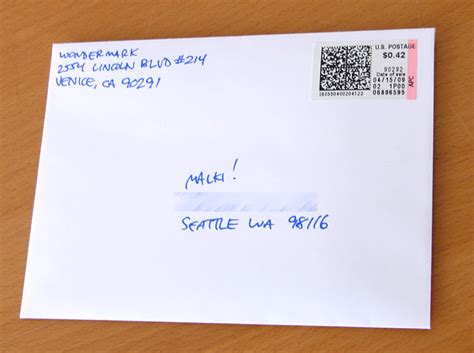 WONDERMARK
2554 LINCOLN BLVD #214
VENICE, CA 90291
U.S. POSTAGE
$0.42
90292
Date of sale
04/15/09
02 1P00
06896595
APC
MALKI!
SEATTLE WA 98116